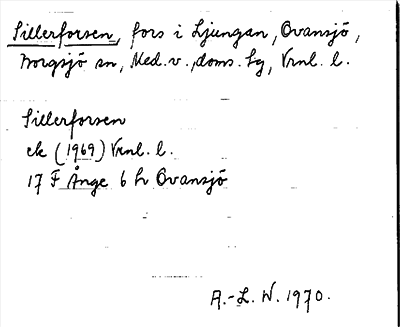 Sillerforsen, fors i Ljungan, Ovansjö,
Borgsjö sn, Med. v., doms. lg, Vrnl. l.
Sillerforsen
ek (1969) Vrnl. l.
17 F Ånge 6 h Ovansjö
A.-L. W. 1970.